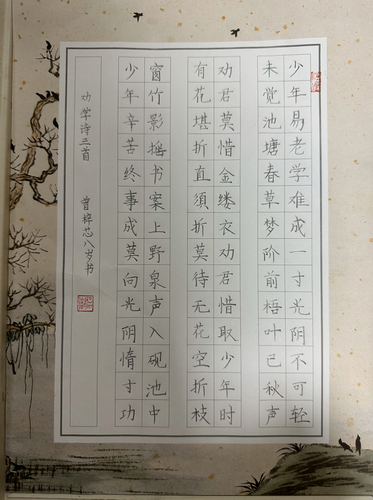 少年易老学难成一寸光阴不可轻
未觉池塘春草梦阶前梧叶已秋声
劝君莫惜金缕衣劝君惜取少年时
有花堪折直須折莫待无花空折枝
窗竹影摇书案上野泉声入砚池中
少年辛苦终事成莫向光阴惰寸功
劝学诗三首 曾梓芯八岁书